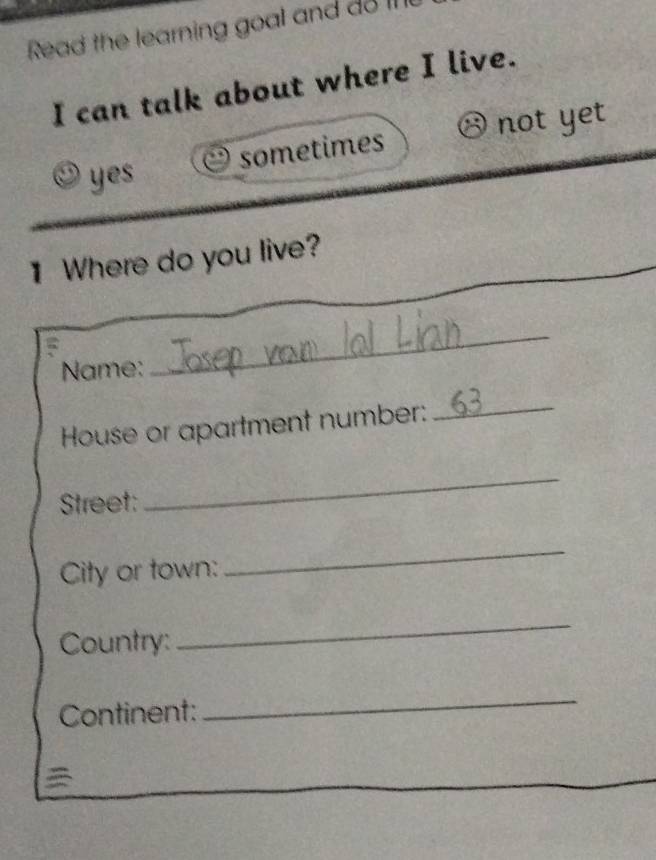 Read the learning goal and do
I can talk about where I live.
yes sometimes not yet
1 Where do you live?
Name: Josep van lal Lian
House or apartment number: 63
Street:
City or town:
Country:
Continent: